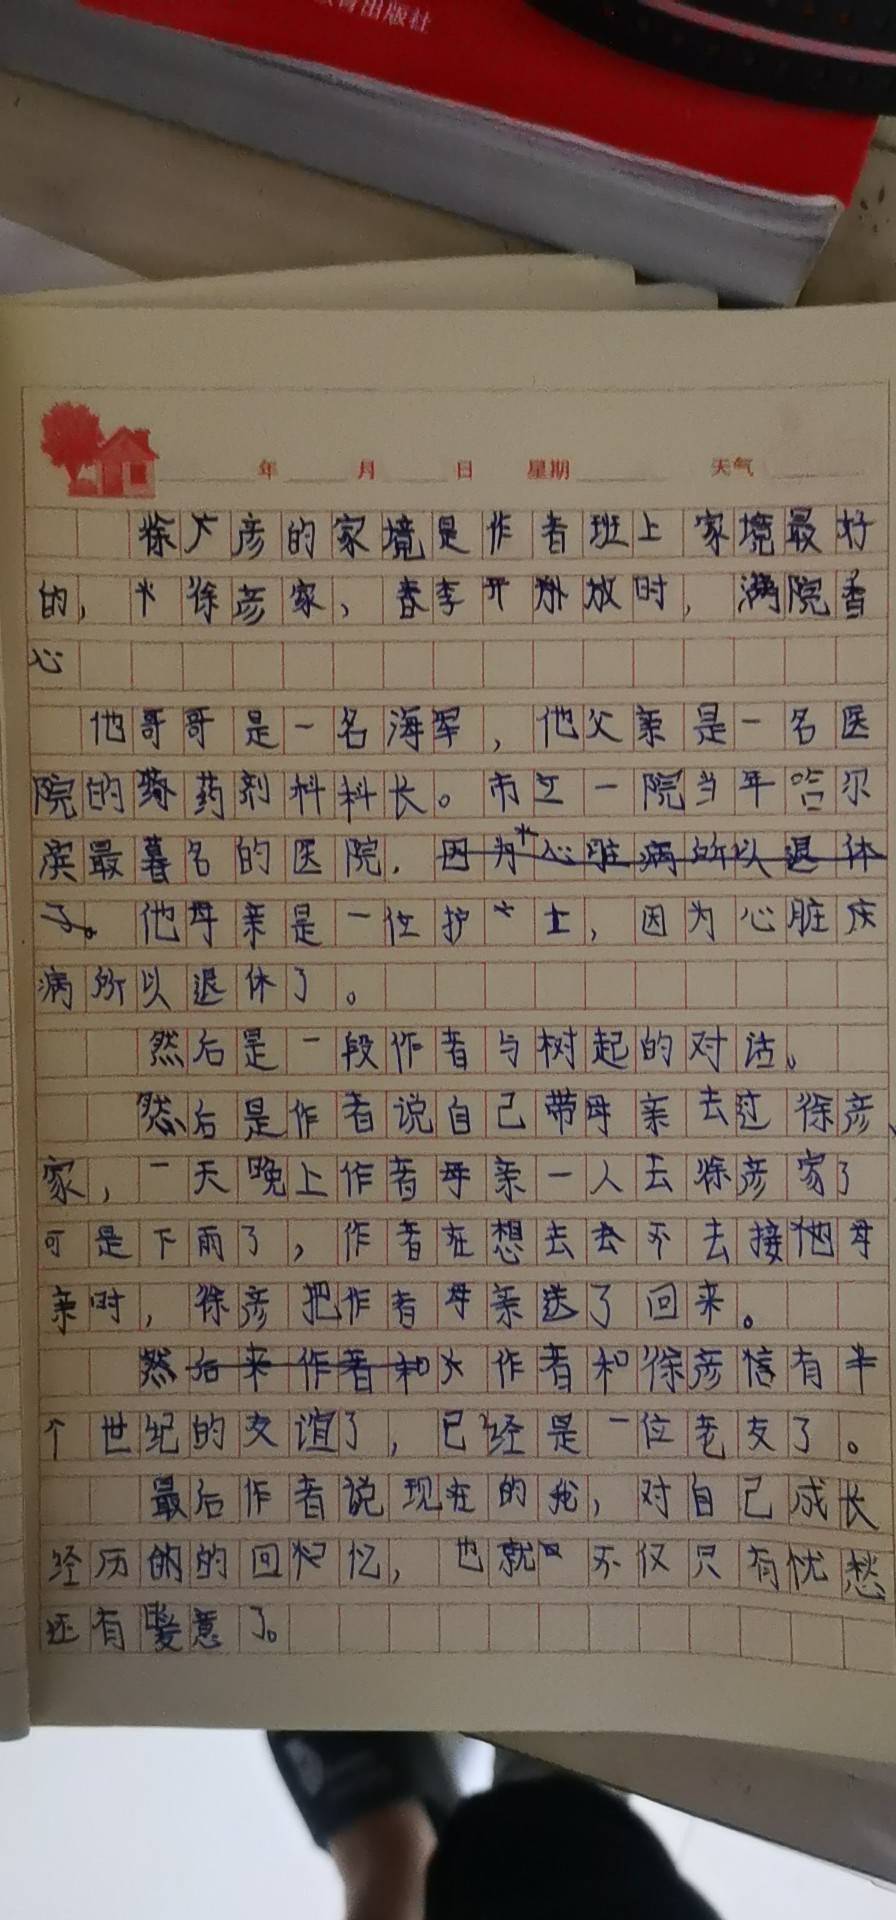 育出版社
年 月 日 星期 天气
徐彦的家境是作者班上家境最好
的，徐彦家、春季开放时，满院香
心
他哥哥是一名海军，他父亲是一名医
院的药剂科科长。市立一院当年哈尔
滨最著名的医院．因为心脏病所以退休
了。他母亲是一位护士，因为心脏疾
病所以退休了。
然后是一段作者与树起的对话。
然后是作者说自己带母亲去过徐彦
家，一天晚上作者母亲一人去徐彦家了
可是下雨了，作者在想去去不去接他母
亲时，徐彦把作者母亲送了回来。
然后来作者和作者和徐彦信有半
个世纪的友谊了，已经是一位老友了。
最后作者说现在的我，对自己成长
经历的的回忆，也就不仅只有忧愁
还有暖意了。